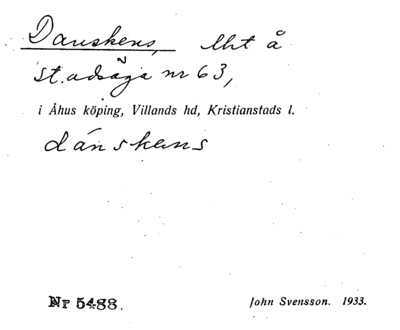 Danskens, lht å
st.adsäga nr 63,
i Åhus köping, Villands hd, Kristianstads l.
dánskens
Nr 5488.
John Svensson. 1933.